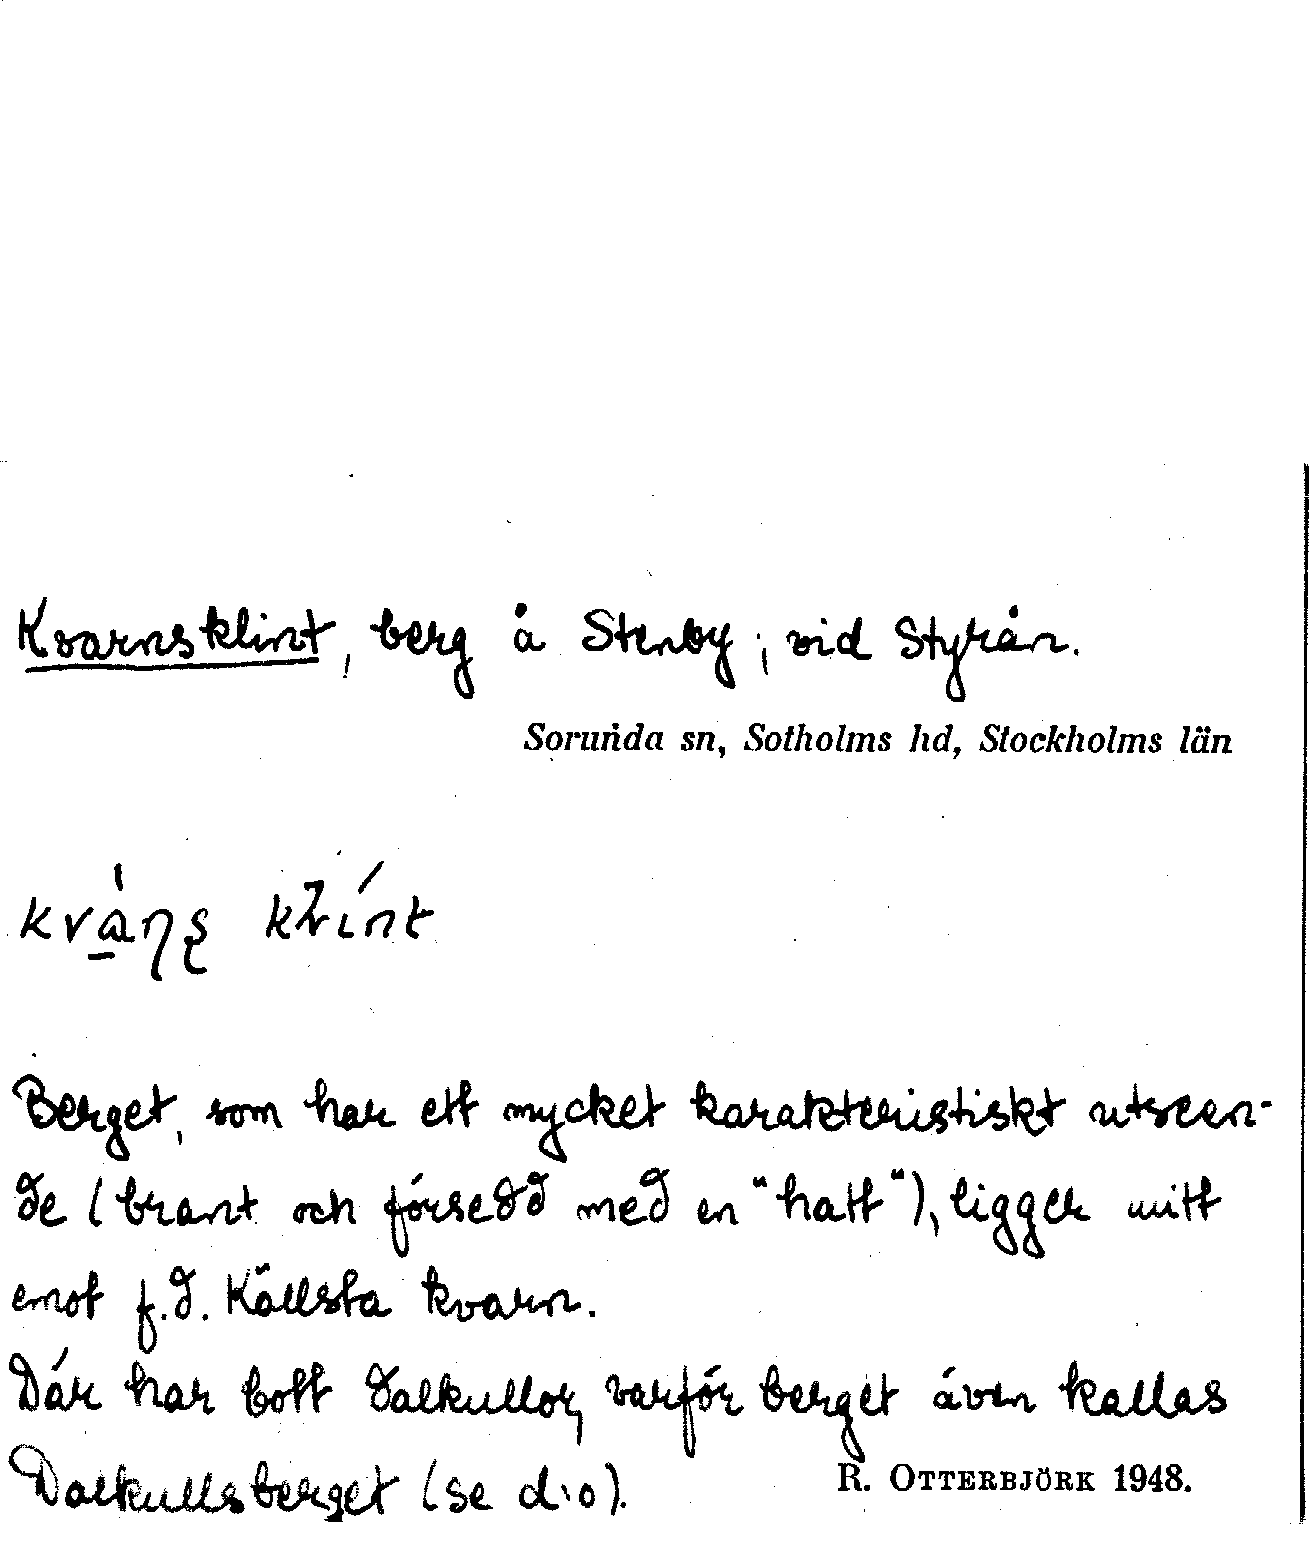 Kvarnsklint, berg å Stenby; vid Styrån.
Sorunda sn, Sotholms hd, Stockholms län
Berget, som har ett mycket karakteristiskt utseen-
de (brant och försedd med en "hatt"), ligger mitt
emot f.d. Källsta kvarn.
Där har bott dalkullor, varför berget även kallas
Dalkullsberget (se d.o).
R. OTTERBJÖRK 1948.